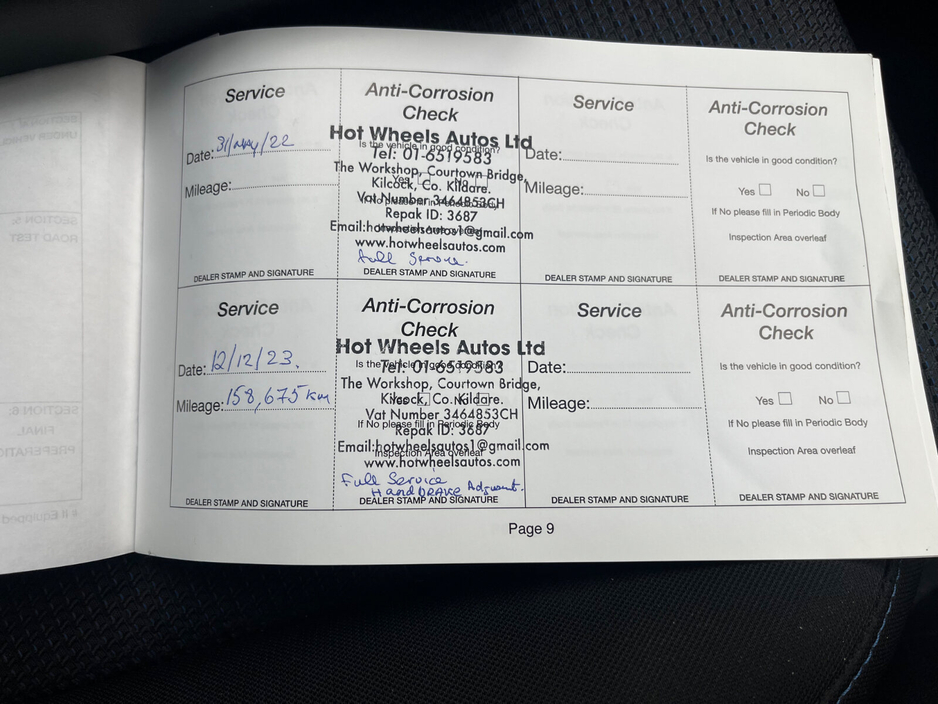 Service
Date: 31/may/22
Mileage:
DEALER STAMP AND SIGNATURE
Anti-Corrosion
Check
Hot Wheels Autos Ltd
Is the vehicle in good condition?
Tel: 01-6519583
The Workshop, Courtown Bridge,
Yes No
Kilcock, Co. Kildare.
Vat Number 3464853CH
If No please fill in Periodic Body
Repak ID: 3687
Inspection Area overleaf
Email:hotwheelsautos1@gmail.com
www.hotwheelsautos.com
Full Service.
DEALER STAMP AND SIGNATURE
Service
Date:
Mileage:
DEALER STAMP AND SIGNATURE
Anti-Corrosion
Check
Is the vehicle in good condition?
Yes No
If No please fill in Periodic Body
Inspection Area overleaf
DEALER STAMP AND SIGNATURE
Service
Date: 12/12/23.
Mileage: 158,675 km
DEALER STAMP AND SIGNATURE
Anti-Corrosion
Check
Hot Wheels Autos Ltd
Is the vehicle in good condition?
Tel: 01-6519583
The Workshop, Courtown Bridge,
Yes No
Kilcock, Co. Kildare.
Vat Number 3464853CH
If No please fill in Periodic Body
Repak ID: 3687
Email:hotwheelsautos1@gmail.com
Inspection Area overleaf
www.hotwheelsautos.com
Full Service
HandBRAKE
DEALER STAMP AND SIGNATURE
Service
Date:
Mileage:
DEALER STAMP AND SIGNATURE
Anti-Corrosion
Check
Is the vehicle in good condition?
Yes No
If No please fill in Periodic Body
Inspection Area overleaf
DEALER STAMP AND SIGNATURE
Page 9